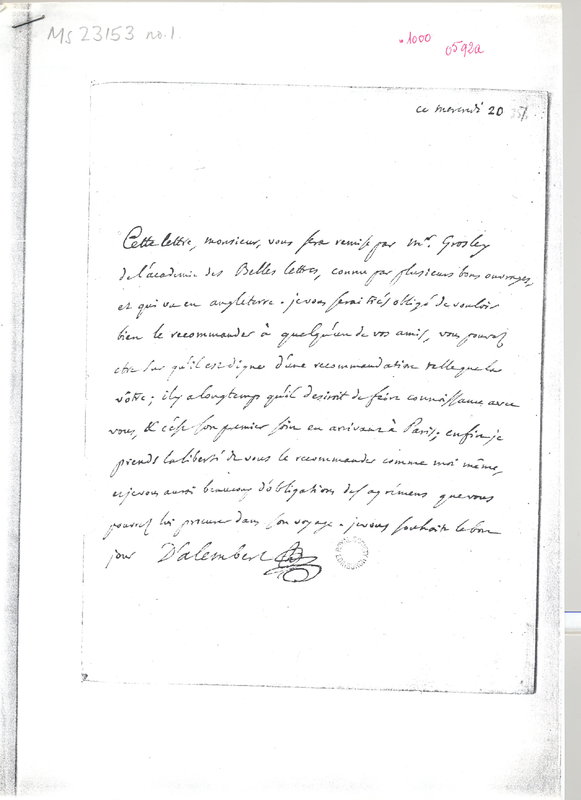 Ms 23153 no. 1.
.1000
0592a
ce mercredi 20
Cette lettre, monsieur, vous sera remise par mr. Grosley
de l'academie des Belles lettres, connu par plusieurs bons ouvrages,
et qui va en angleterre. je vous serai très obligé de vouloir
bien le recommander à quelqu'un de vos amis, vous pouvez
etre sur qu'il est digne d'une recommandation telle que la
vôtre; il y a longtemps qu'il desiroit de faire connaissance avec
vous, & c'est son premier soin en arivant à Paris; enfin je
prends la liberté de vous le recommander comme moi même,
et je vous aurai beaucoup d'obligations des agrémens que vous
pourrez lui procurer dans son voyage. je vous souhaite le bon
jour D'alembert